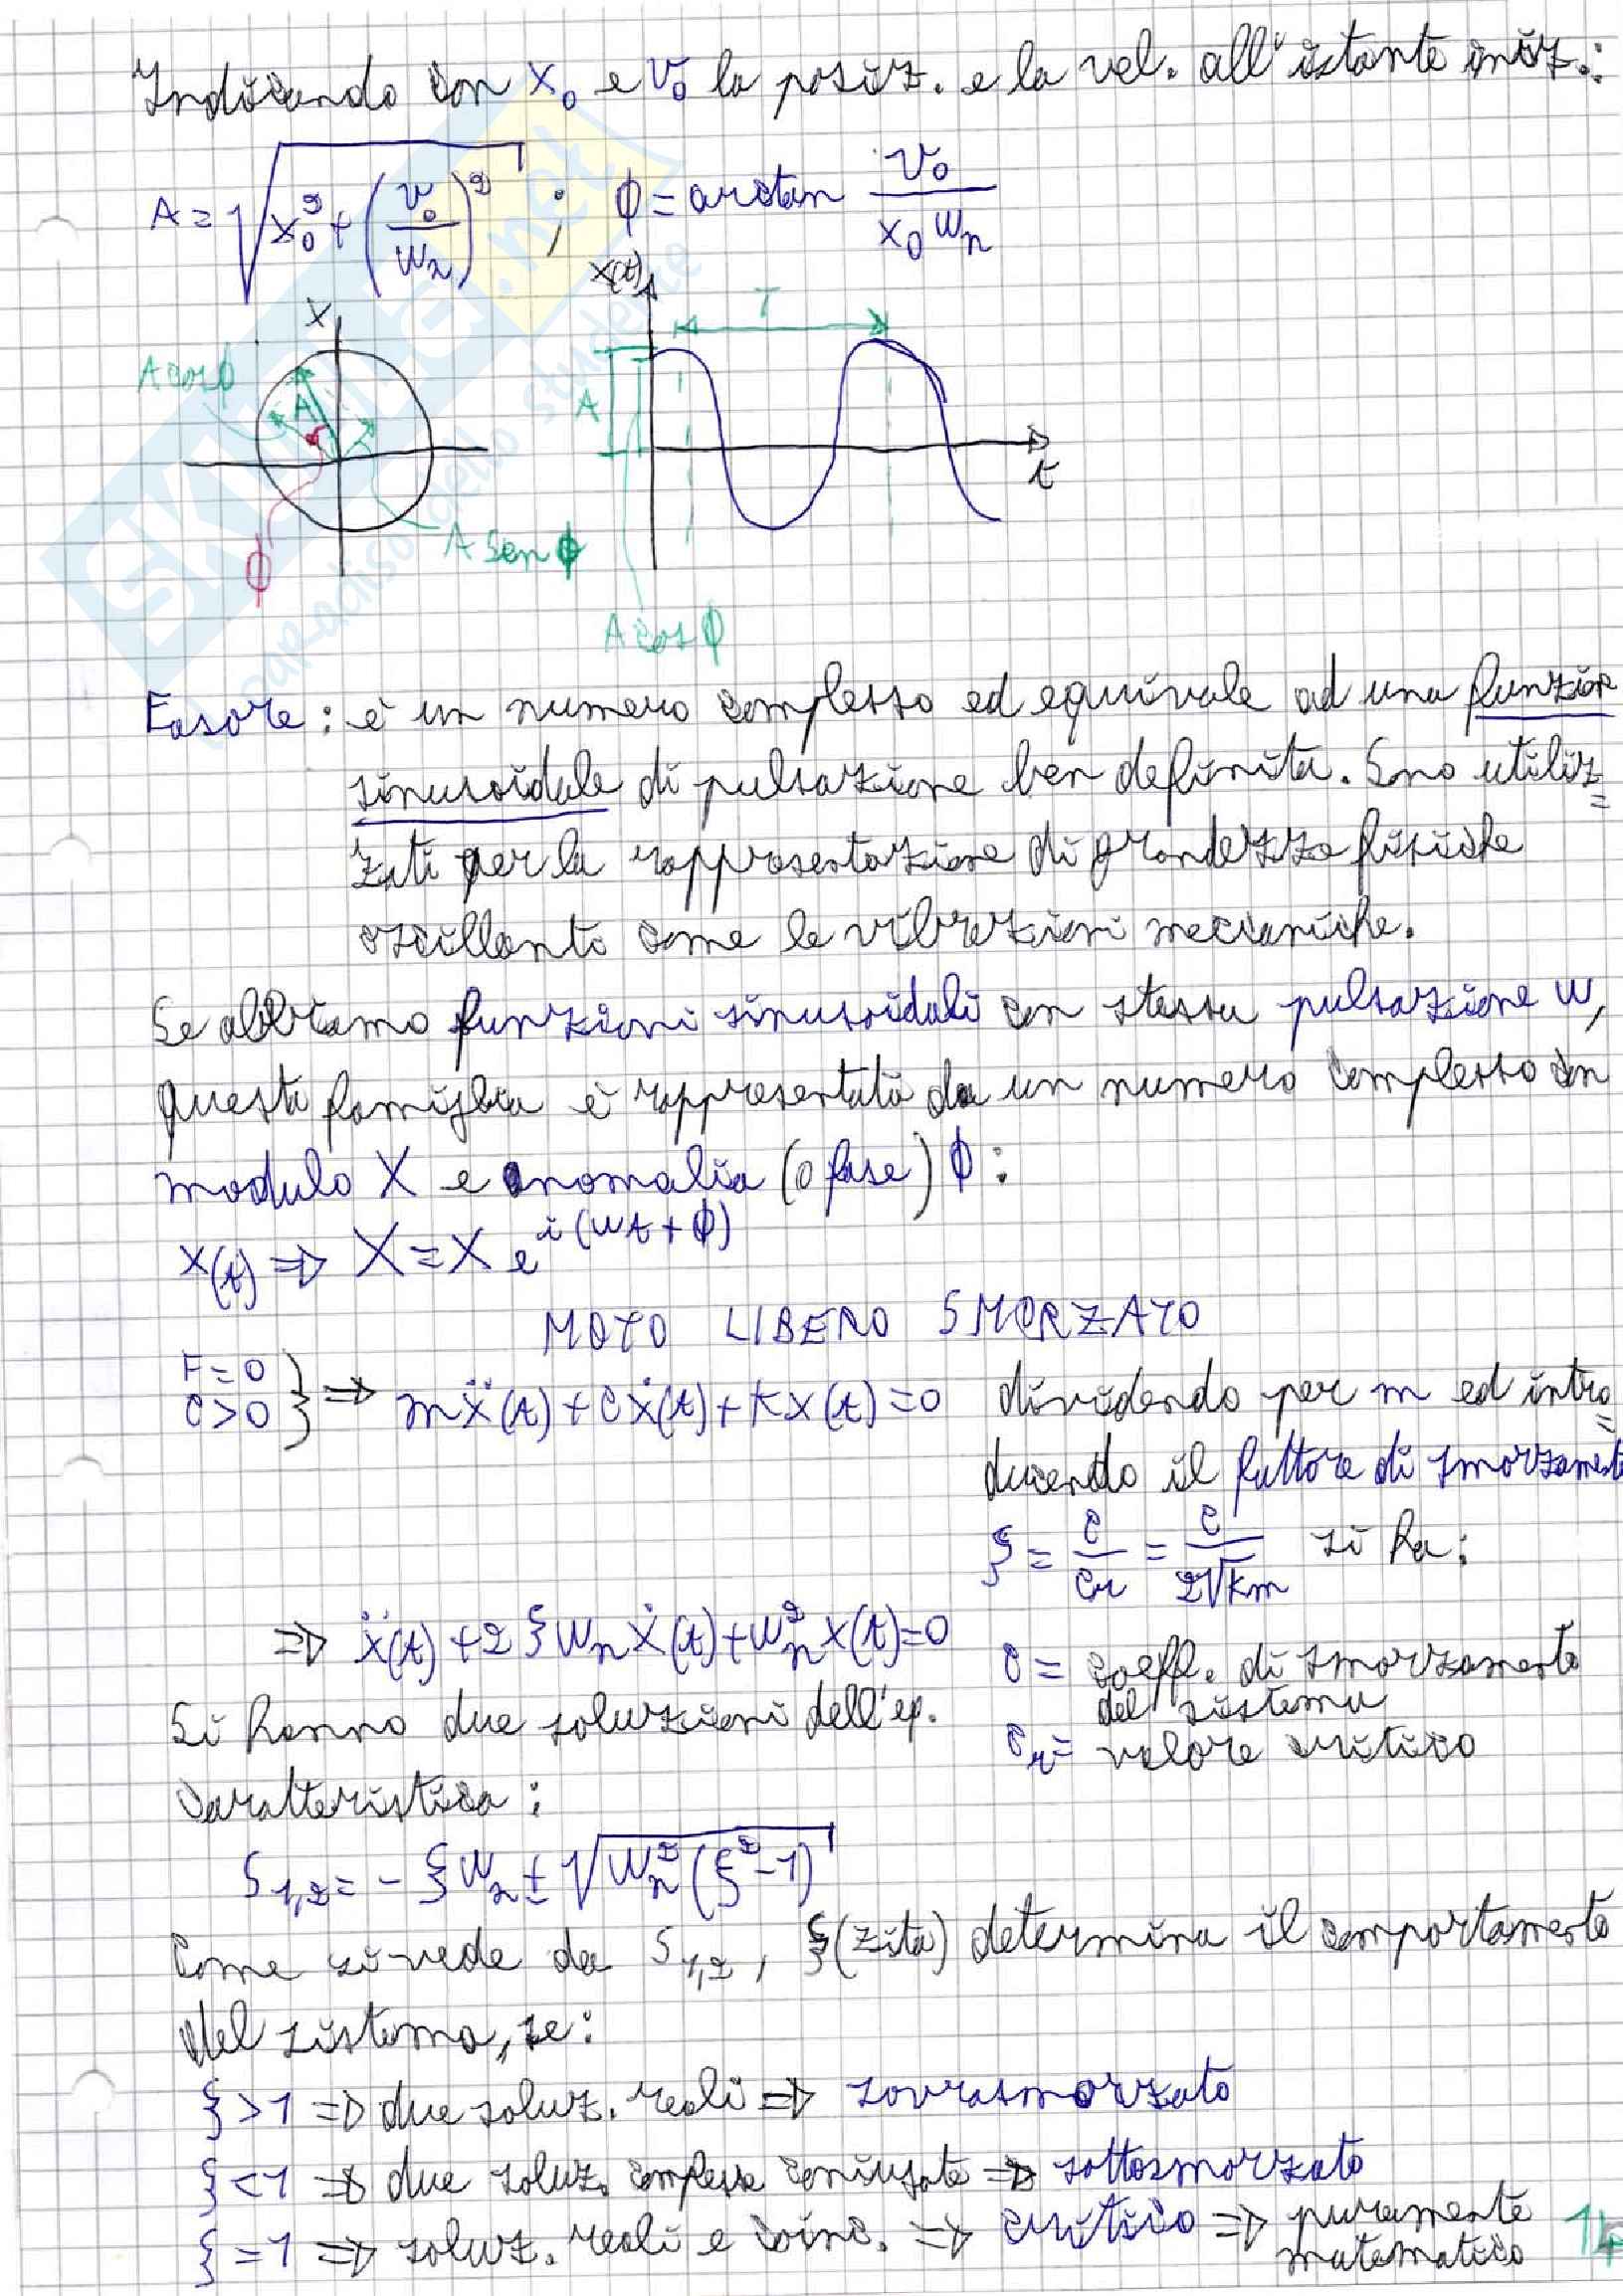 Indicando con x₀ e v₀ la posiz. e la vel. all'istante iniz.:
A = √(x₀² + (v₀/ωₙ)²) ; ϕ = arctan v₀/(x₀ ωₙ)
X
x(t)
T
A cosϕ
A
A
t
ϕ
A senϕ
A cosϕ
Fasore: è un numero complesso ed equivale ad una funzion
sinusoidale di pulsazione ben definita. Sono utiliz=
zati per la rappresentazione di grandezze fisiche
oscillanti come le vibrazioni meccaniche.
Se abbiamo funzioni sinusoidali con stessa pulsazione ω,
questa famiglia è rappresentata da un numero complesso con
modulo X e anomalia (o fase) ϕ:
x(t) ⇒ X = X e^i(ωt + ϕ)
MOTO LIBERO SMORZATO
F = 0
C > 0 } ⇒ mẍ(t) + cẋ(t) + kx(t) = 0 dividendo per m ed intro=
ducendo il fattore di smorzamento
ξ = c/ccr = c/(2√km) si ha:
⇒ ẍ(t) + 2ξωₙẋ(t) + ωₙ²x(t) = 0
c = coeff. di smorzamento
del sistema
Si hanno due soluzioni dell'eq.
ccr = valore critico
caratteristica:
S₁,₂ = -ξωₙ ± √(ωₙ²(ξ²-1))
Come si vede da S₁,₂, ξ(zita) determina il comportamento
del sistema, se:
ξ > 1 ⇒ due soluz. reali ⇒ sovrasmorzato
ξ < 1 ⇒ due soluz. complesse coniugate ⇒ sottosmorzato
ξ = 1 ⇒ soluz. reali e coinc. ⇒ critico ⇒ puramente
matematico
14
SKUOLA.net
il paradiso dello studente